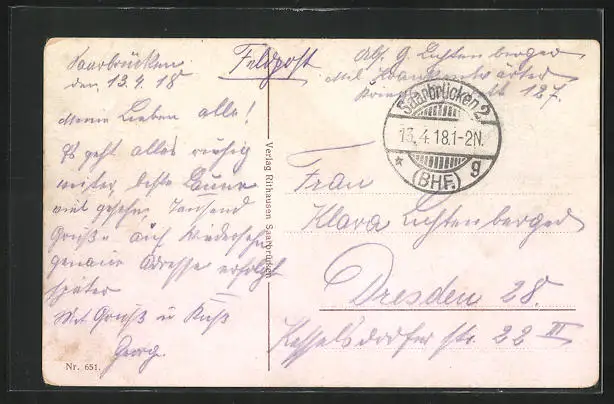 Saarbrücken
den 13.4.18
Feldpost
Abs. G. Lichtenberger
Mil. Krankenwärter
127.
Saarbrücken 2.
13.4.18.1-2N.
* (BHF.) g
Meine Lieben alle!
Es geht alles ruhig
weiter, beste Laune
viel gesehen, Tausend
Grüße auf Wiedersehn
genaue Adresse erfolgt
später
Mit Gruß u Kuß
Georg.
Nr. 651.
Verlag Rithausen Saarbrücken
Frau
Klara Lichtenberger
Dresden 28.
Kesselsdorfer str. 22 III